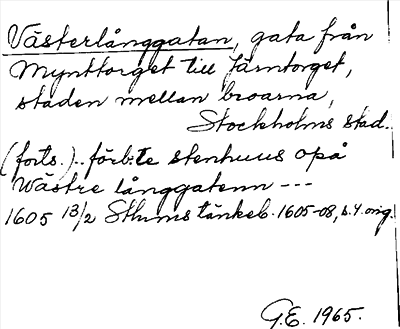 Västerlånggatan, gata från
Mynttorget till Järntorget,
staden mellan broarna,
Stockholms stad.
(forts.).. förb:te stenhuus opå
Wästre långgatenn ---
1605 13/2 Sthms tänkeb. 1605-08, s. 4 orig.
G.E. 1965.